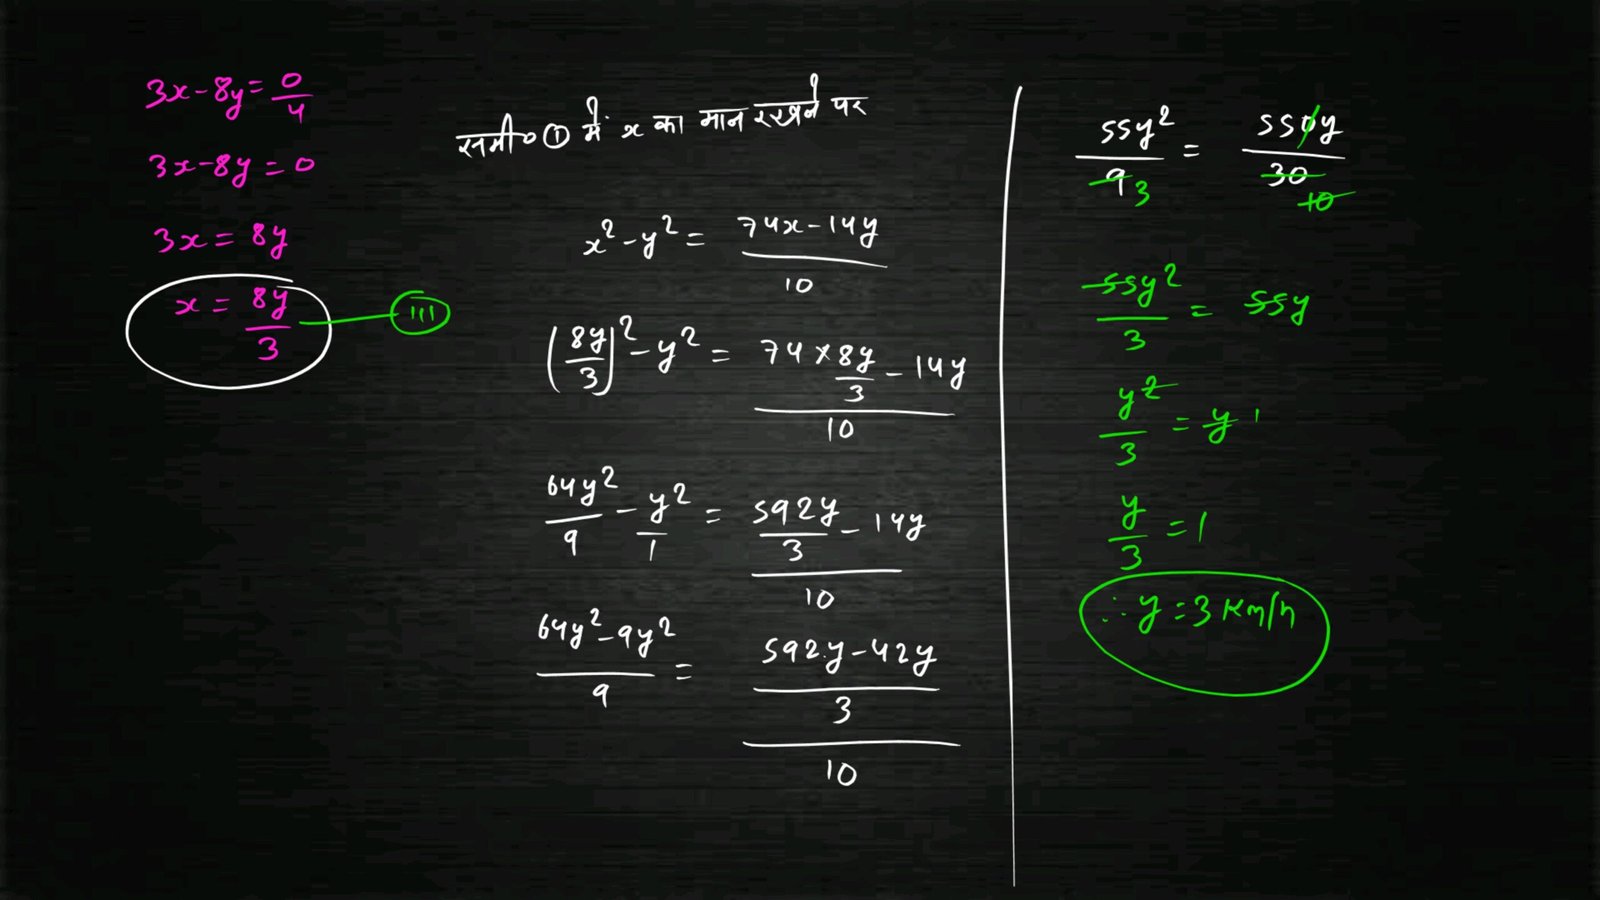 3x-8y=0/4
3x-8y=0
3x=8y
x=8y/3 (III)
समी० ① में x का मान रखने पर
x²-y²=(74x-14y)/10
(8y/3)²-y²=(74×8y/3-14y)/10
64y²/9-y²/1=(592y/3-14y)/10
(64y²-9y²)/9=((592y-42y)/3)/10
55y²/9 3=550y/30 10
55y²/3=55y
y²/3=y 1
y/3=1
∴y=3 Km/h